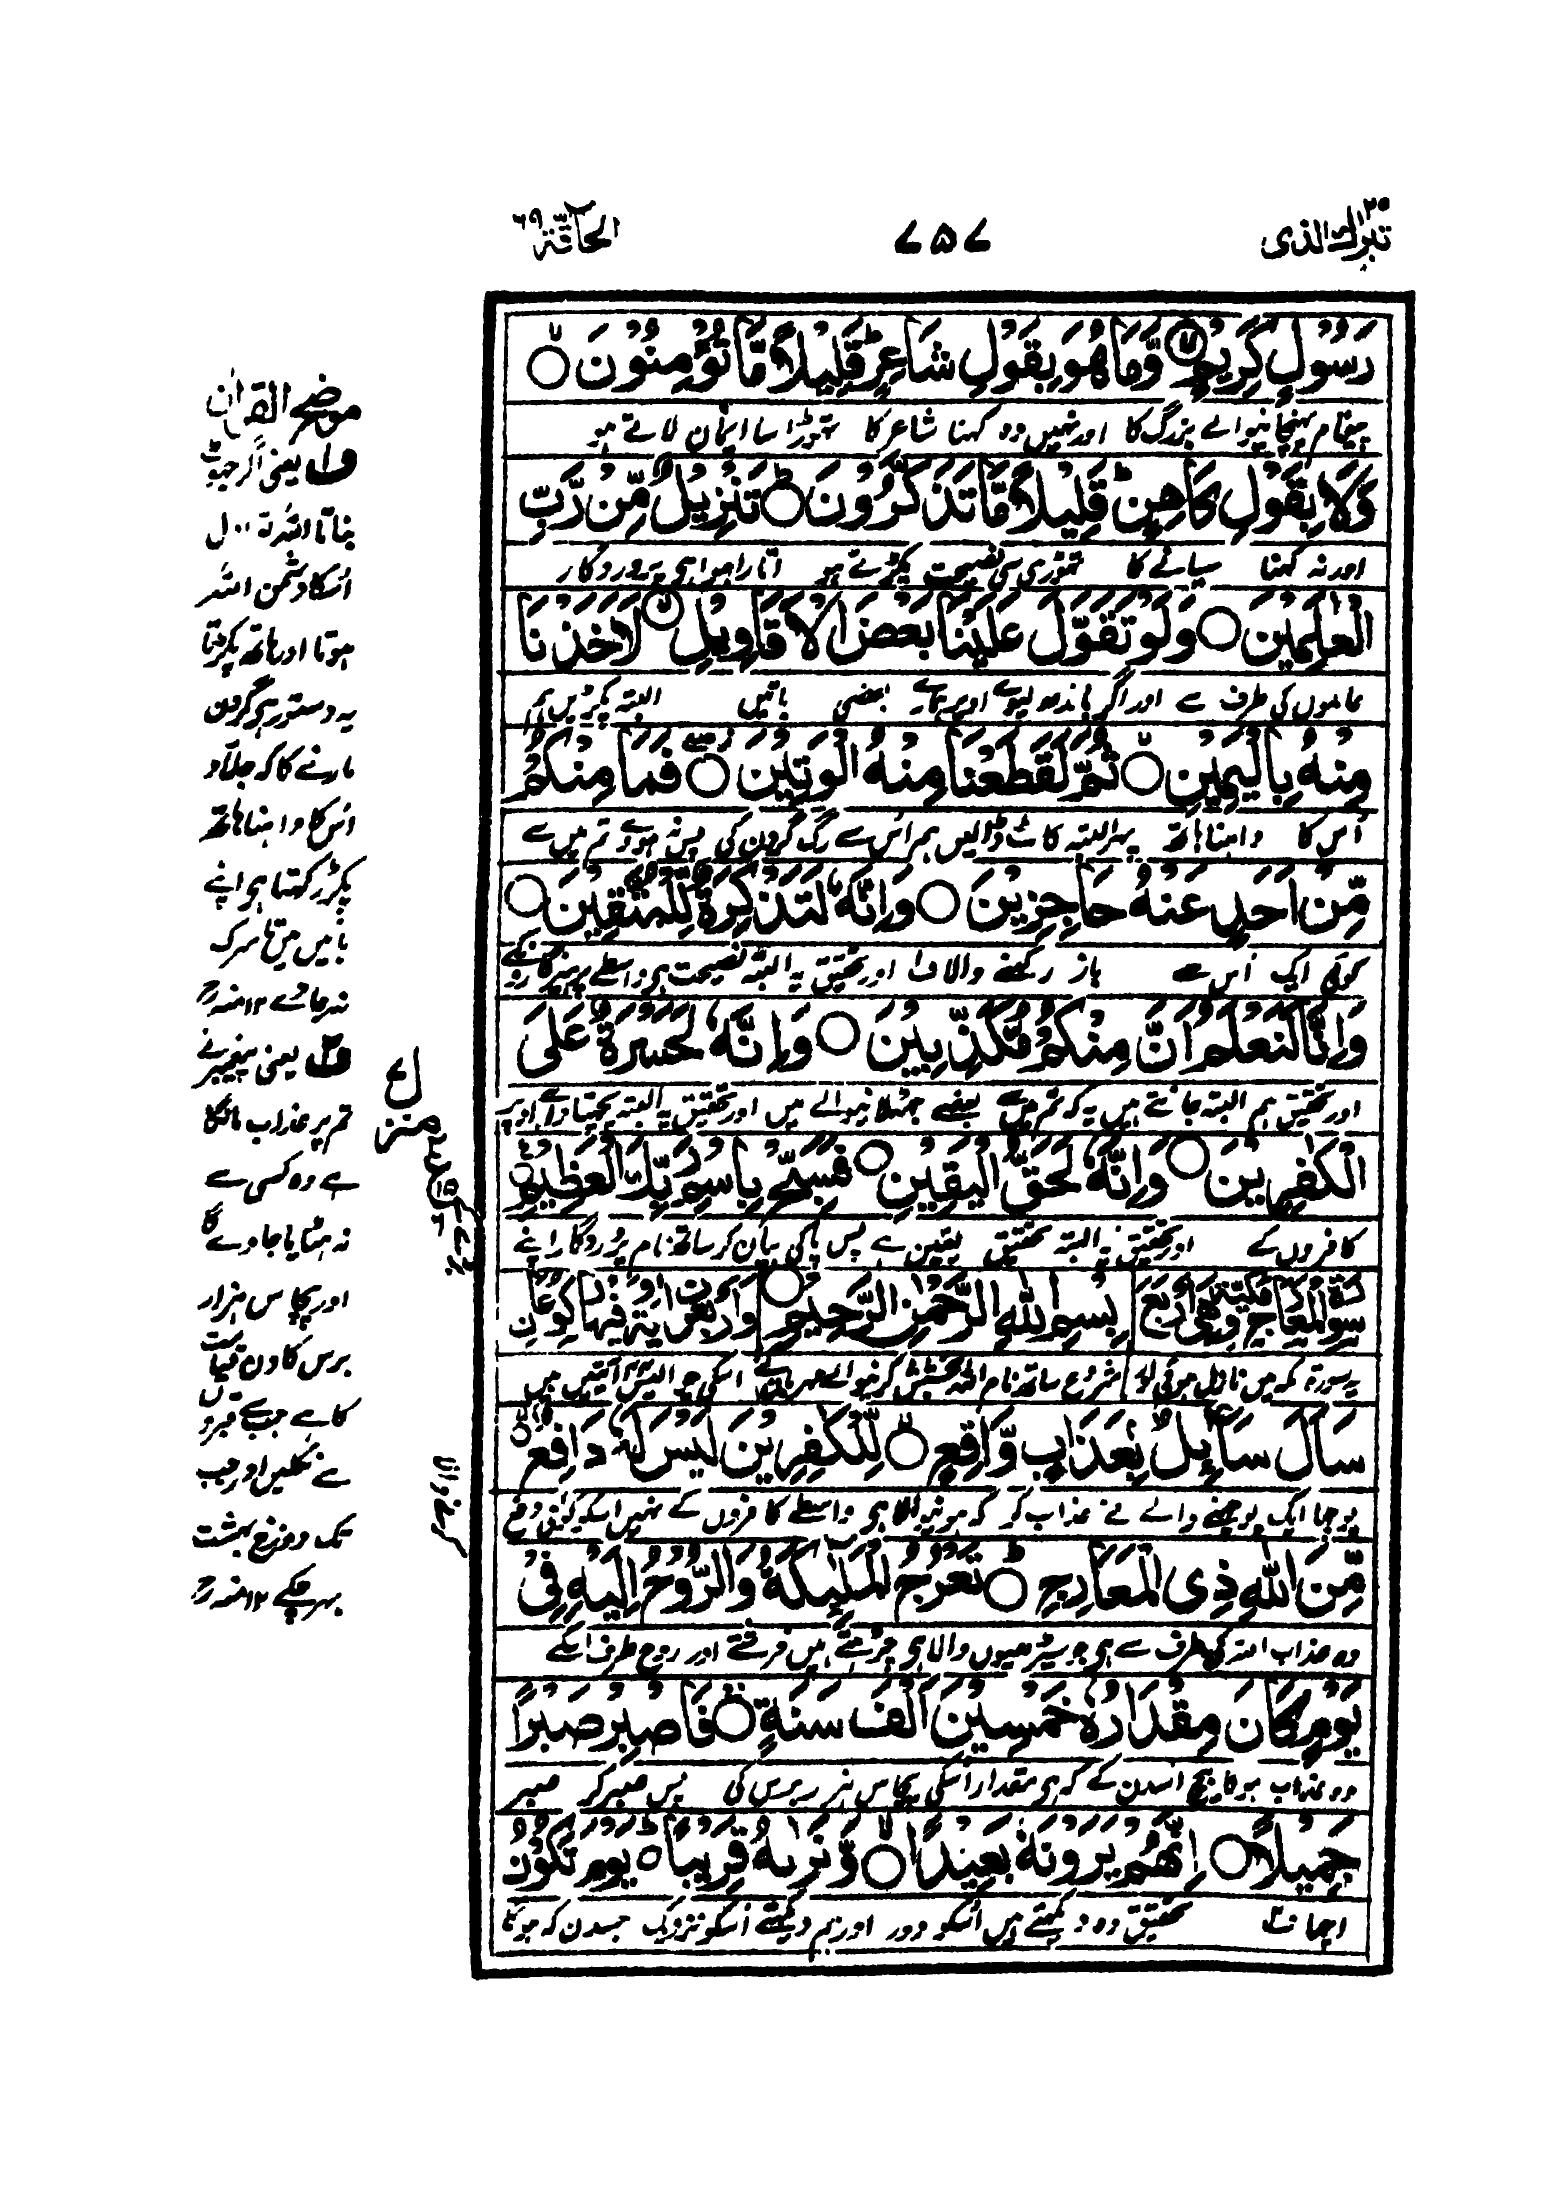 تبٰرک الذی ۲۹
۷۵۷
الحآقّة ۶۹
رَسُوْلٍ كَرِيْمٍ ۙ وَّمَا هُوَ بِقَوْلِ شَاعِرٍ ؕ قَلِيْلًا مَّا تُؤْمِنُوْنَ ۙ
پیغام پہنچانیوالے بزرگ کا اور نہیں وہ کہنا شاعر کا تھوڑا سا ایمان لاتے ہو
وَلَا بِقَوْلِ كَاهِنٍ ؕ قَلِيْلًا مَّا تَذَكَّرُوْنَ ؕ تَنْزِيْلٌ مِّنْ رَّبِّ
اور نہ کہنا سیانے کا تھوڑی سی نصیحت پکڑتے ہو اتارا ہوا ہی پروردگار
الْعٰلَمِيْنَ ○ وَلَوْ تَقَوَّلَ عَلَيْنَا بَعْضَ الْاَقَاوِيْلِ ۙ لَاَخَذْنَا
عالموں کی طرف سے اور اگر باندھ لیوے اوپر ہمارے بعضی باتیں البتہ پکڑیں ہم
مِنْهُ بِالْيَمِيْنِ ۙ ثُمَّ لَقَطَعْنَا مِنْهُ الْوَتِيْنَ ○ فَمَا مِنْكُمْ
اُس کا داہنا ہاتھ پہر البتہ کاٹ ڈالیں ہم اُس سے رگ گردن کی پس نہ ہووے تم میں سے
مِّنْ اَحَدٍ عَنْهُ حَاجِزِيْنَ ○ وَاِنَّهٗ لَتَذْكِرَةٌ لِّلْمُتَّقِيْنَ ○
کوئی ایک اُس سے باز رکھنے والا ف۱ اور تحقیق یہ البتہ نصیحت ہی واسطے پرہیزگاروں کے
وَاِنَّا لَنَعْلَمُ اَنَّ مِنْكُمْ مُّكَذِّبِيْنَ ○ وَاِنَّهٗ لَحَسْرَةٌ عَلَى
اور تحقیق ہم البتہ جانتے ہیں یہ کہ تم میں سے بعضے جھٹلانیوالے ہیں اور تحقیق یہ البتہ پچھتاوا ہے اوپر
الْكٰفِرِيْنَ ○ وَاِنَّهٗ لَحَقُّ الْيَقِيْنِ ○ فَسَبِّحْ بِاسْمِ رَبِّكَ الْعَظِيْمِ
کافروں کے اور تحقیق یہ البتہ تحقیق یقین ہے پس پاکی بیان کر ساتھ نام پروردگار اپنے
سُوْرَةُ الْمَعَارِجِ مَكِّيَّةٌ وَّهِيَ اَرْبَعٌ بِسْمِ اللّٰهِ الرَّحْمٰنِ الرَّحِيْمِ ○ وَاَرْبَعُوْنَ اٰيَةً وَّفِيْهَا رُكُوْعَانِ
یہ سورۃ مکہ میں نازل ہوئی شروع ساتھ نام اللہ بخشش کرنیوالے مہربان کے اسکی چوالیس آیتیں ہیں
سَاَلَ سَآئِلٌۢ بِعَذَابٍ وَّاقِعٍ ۙ لِّلْكٰفِرِيْنَ لَيْسَ لَهٗ دَافِعٌ ۙ
پوچھا ایک پوچھنے والے نے عذاب کو کہ ہونیوالا ہی واسطے کافروں کے نہیں اسکو کوئی دفع
مِّنَ اللّٰهِ ذِى الْمَعَارِجِ ؕ تَعْرُجُ الْمَلٰٓئِكَةُ وَالرُّوْحُ اِلَيْهِ فِيْ
وہ عذاب اللہ کی طرف سے ہی جو سیڑھیوں والا ہی چڑھتے ہیں فرشتے اور روح طرف اسکے
يَوْمٍ كَانَ مِقْدَارُهٗ خَمْسِيْنَ اَلْفَ سَنَةٍ ۚ فَاصْبِرْ صَبْرًا
وہ عذاب ہوگا بیچ اُسدن کے کہ ہی مقدار اُسکی پچاس ہزار برس کی پس صبر کر صبر
جَمِيْلًا ○ اِنَّهُمْ يَرَوْنَهٗ بَعِيْدًا ۙ وَّنَرٰىهُ قَرِيْبًا ؕ يَوْمَ تَكُوْنُ
اچھا ف۲ تحقیق وہ دیکھتے ہیں اُسکو دور اور ہم دیکھتے اُسکو نزدیک جسدن کہ ہوگا
منزل ۷
کرنے والا
موضح القرآن
ف۱ یعنی اگر جھوٹ
بناتا اللہ تو اول
اُسکا دشمن اللہ
ہوتا اور ہاتھ پکڑتا
یہ دستور ہی گردن
مارنے کا کہ جلّاد
اُس کا داہنا ہاتھ
پکڑ رکھتا ہی اپنے
بائیں میں تا سرک
نہ جاوے ۱۲ منہ رح
ف۲ یعنی پیغمبر نے
تم پر عذاب مانگا
ہے وہ کسی سے
نہ ہٹایا جاوے گا
اور پچاس ہزار
برس کا دن قیامت
کا ہے جب سے قبروں
سے نکلیں اور جب
تک دوزخ بہشت
بہر چکے ۱۲ منہ رح